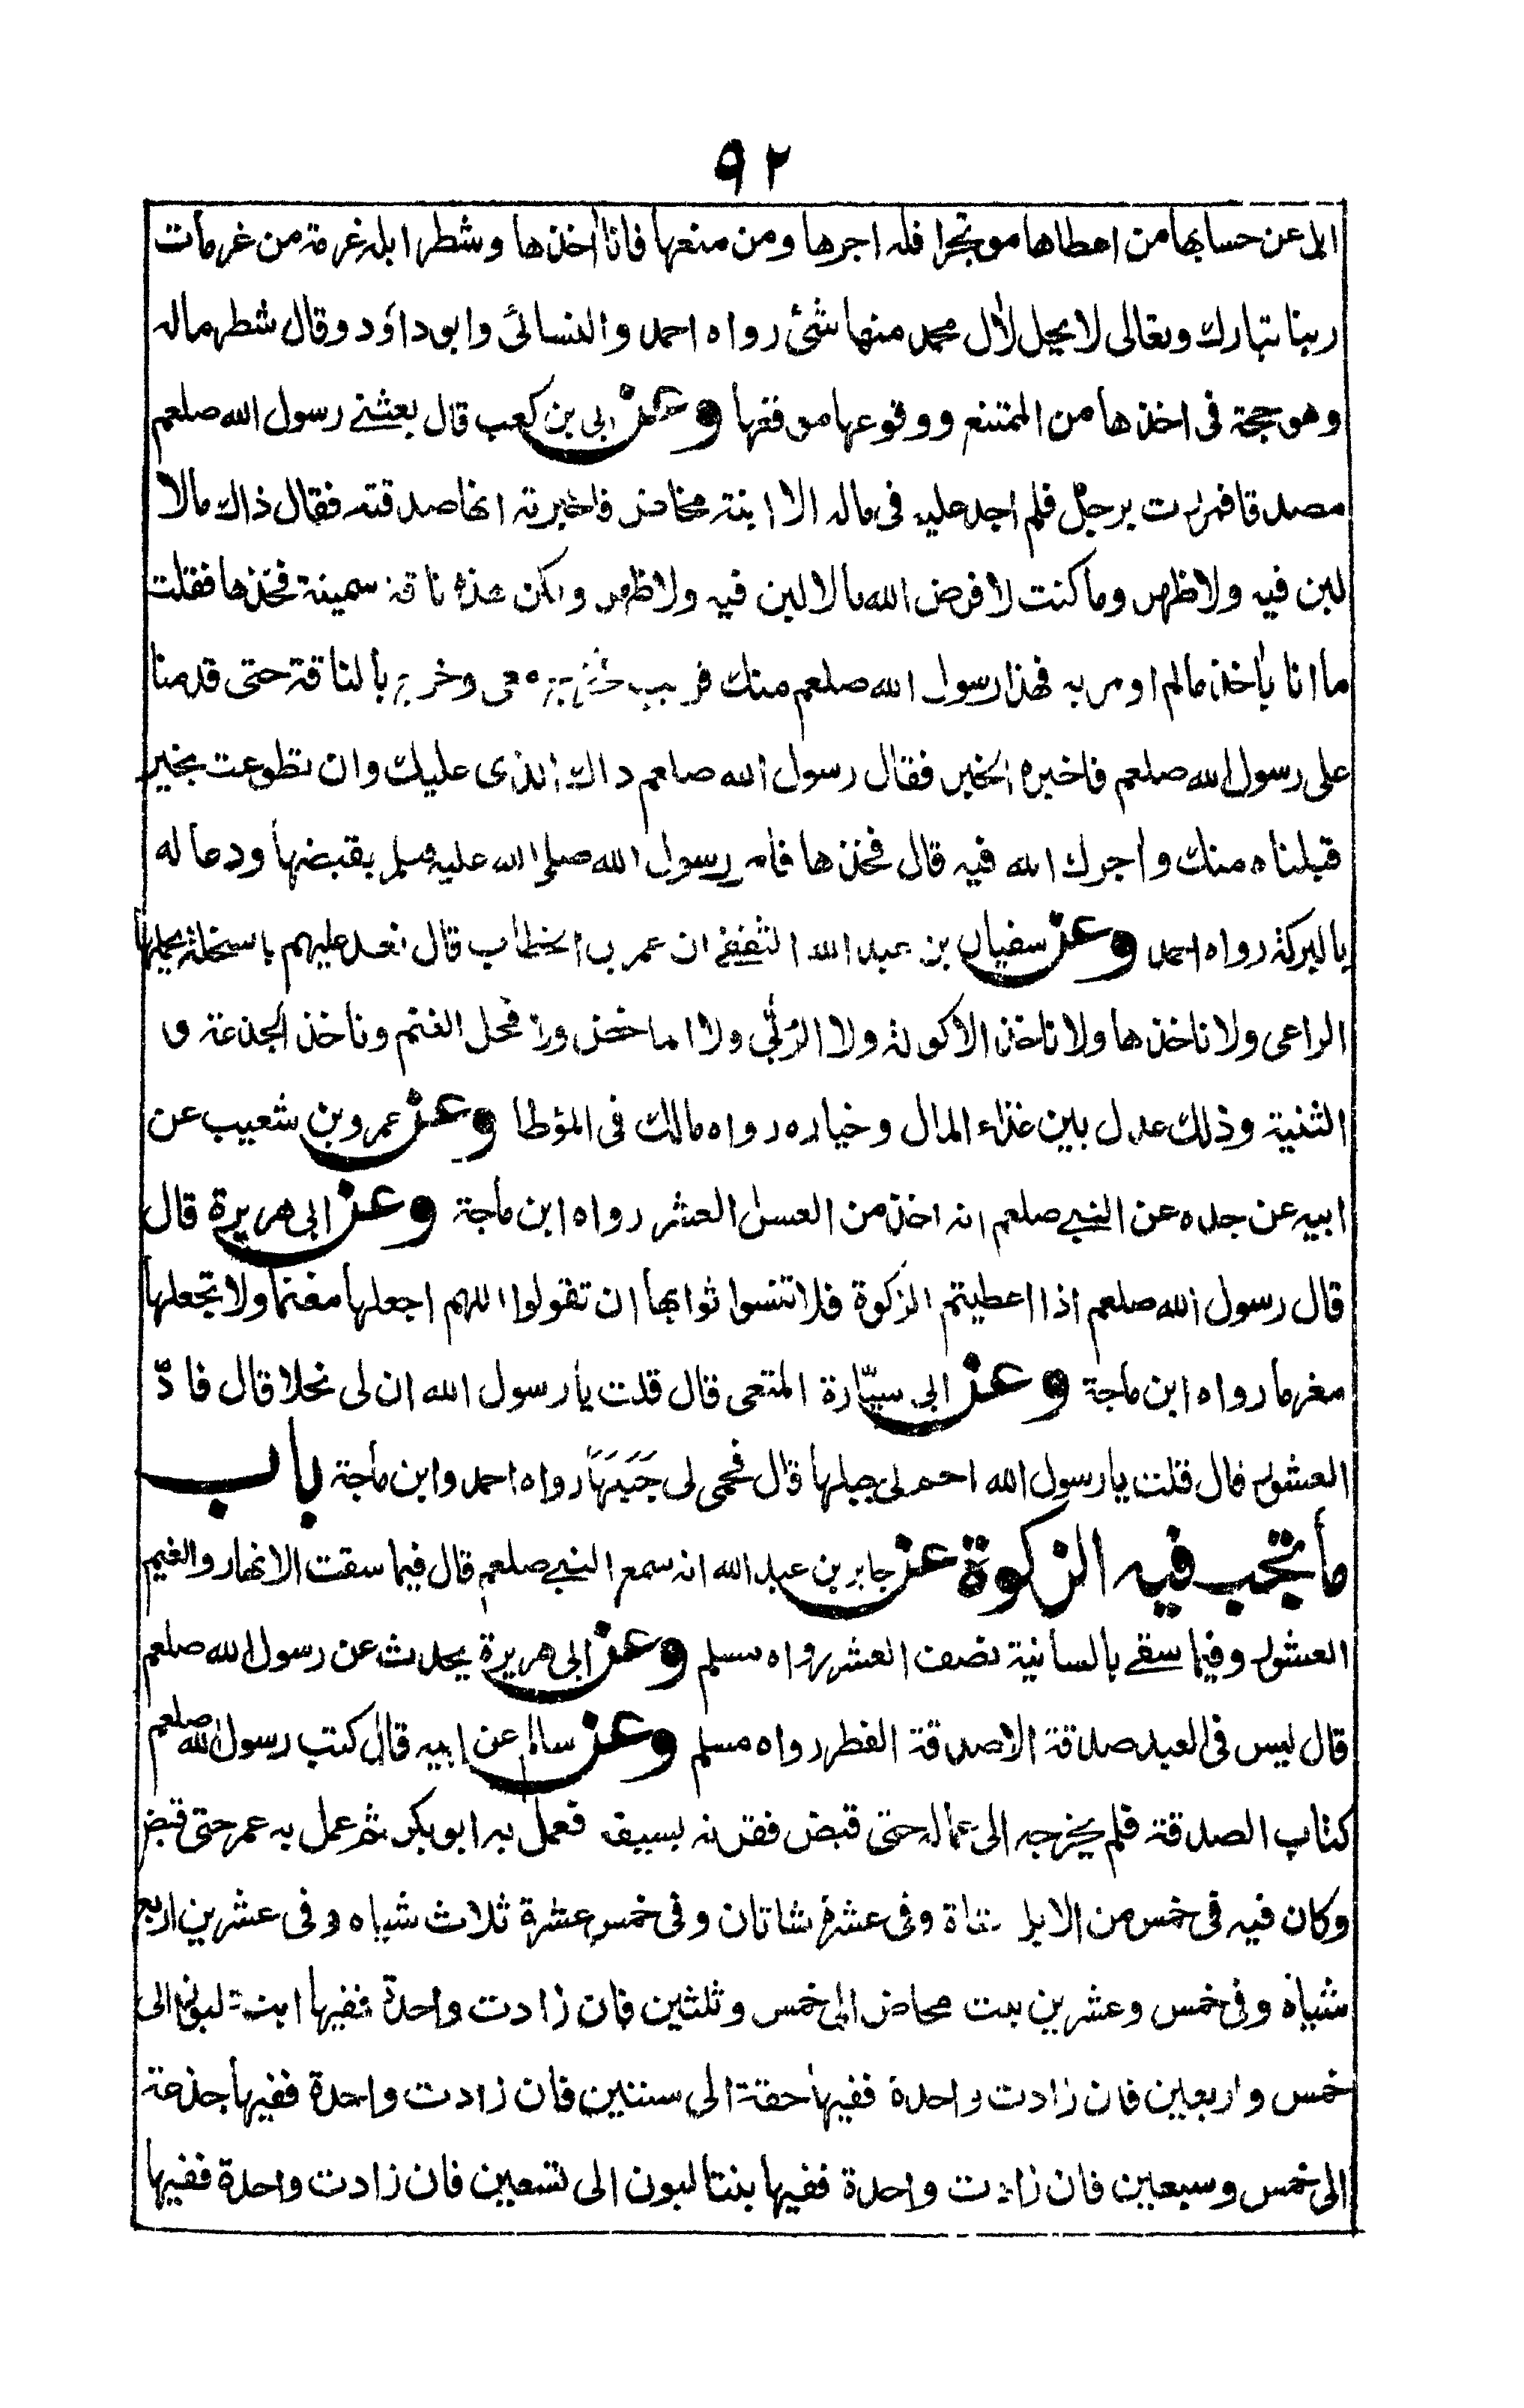 ٩٢
ابل عن حسابها من اعطاها موتجرا فله اجرها ومن منعها فانا اخذها وشطر ابله غرمة من غرمات
ربنا تبارك وتعالى لا يحل لأل محمد منها شئ رواه احمد والنسائى وابو داؤد وقال شطر ماله
وهو حجة فى اخذها من الممتنع ووقوعها موقعها وعن ابى بن كعب قال بعثنے رسول الله صلعم
مصدقا فمررت برجل فلم اجد عليه فى ماله الا ابنة مخاض فاخبرته انها صدقته فقال ذاك مالا
لبن فيه ولا ظهر وما كنت لا فرض الله مالا لبن فيه ولا ظهر ولكن هذه ناقة سمينة فخذها فقلت
ما انا باخذ مالم اومر به فهذا رسول الله صلعم منك قريب معى وخرج بالناقة حتى قدمنا
على رسول الله صلعم فاخبره الخبر فقال رسول الله صلعم ذاك الذى عليك وان تطوعت بخير
قبلناه منك واجرك الله فيه قال فخذها فامر رسول الله صلى الله عليه وسلم بقبضها ودعا له
بالبركة رواه احمد وعن سفيان بن عبد الله الثقفے ان عمر بن الخطاب قال نعد عليهم بالسخلة يحملها
الراعى ولا ناخذها ولا ناخذ الاكولة ولا الربّى ولا الماخض ولا فحل الغنم وناخذ الجذعة و
الثنية وذلك عدل بين غذاء المال وخياره رواه مالك فى المؤطا وعن عمرو بن شعيب عن
ابيه عن جده عن النبے صلعم انه اخذ من العسل العشر رواه ابن ماجة وعن ابى هريرة قال
قال رسول الله صلعم اذا اعطيتم الزكوة فلا تنسوا ثوابها ان تقولوا اللهم اجعلها مغنما ولا تجعلها
مغرما رواه ابن ماجة وعن ابى سيّارة المتعى قال قلت يا رسول الله ان لى نحلا قال فادّ
العشور قال قلت يا رسول الله احم لى جبلها قال فحمى لى جَبَلَهَا رواه احمد وابن ماجة باب
ما تجب فيه الزكوة عن جابر بن عبد الله انه سمع النبے صلعم قال فيما سقت الانهار والغيم
العشور وفيما سقے بالسانية نصف العشر رواه مسلم وعن ابى هريرة يحدث عن رسول الله صلعم
قال ليس فى العبد صدقة الا صدقة الفطر رواه مسلم وعن سالم عن ابيه قال كتب رسول الله صلعم
كتاب الصدقة فلم يخرجه الى عماله حتى قبض فقرنه بسيفه فعمل به ابو بكر ثم عمل به عمر حتى قبض
وكان فيه فى خمس من الابل شاة وفى عشرة شاتان وفى خمس عشرة ثلاث شياه وفى عشرين اربع
شياه وفى خمس وعشرين بنت مخاض الى خمس وثلثين فان زادت واحدة ففيها ابنة لبون الى
خمس واربعين فان زادت واحدة ففيها حقة الى ستين فان زادت واحدة ففيها جذعة
الى خمس وسبعين فان زادت واحدة ففيها بنتا لبون الى تسعين فان زادت واحدة ففيها